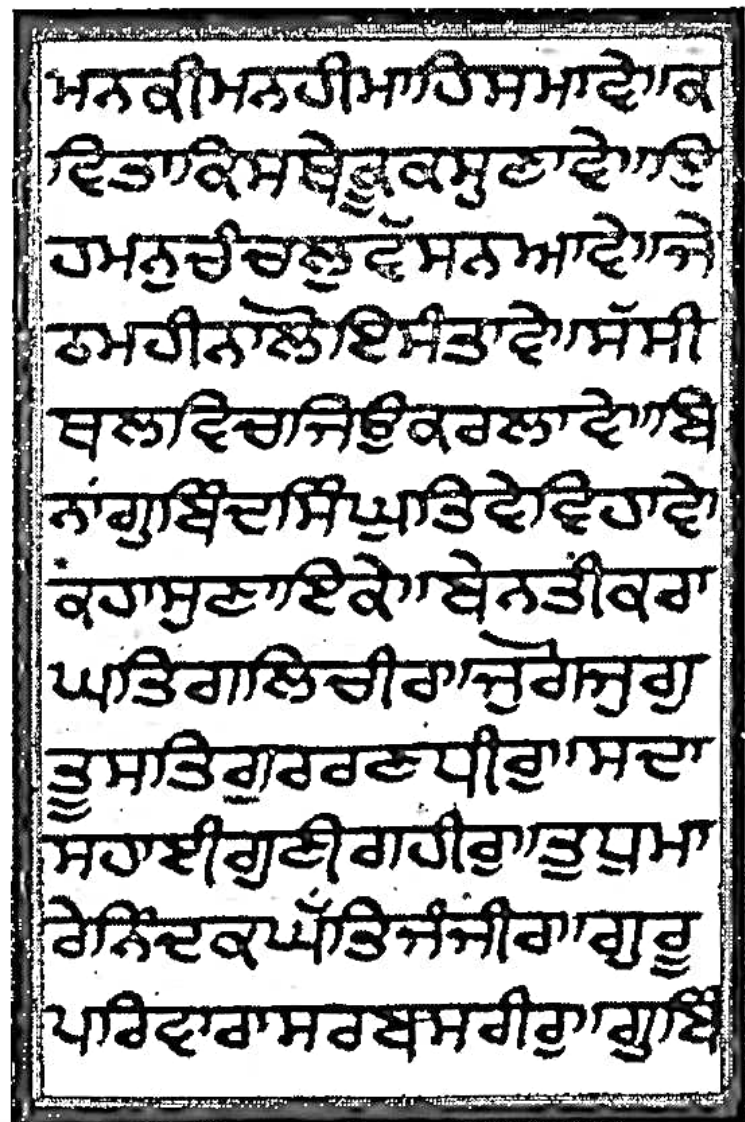 ਮਨਕੀਮਨਹੀਮਾਹਿਸਮਾਵੇ॥ਕ
ਵਿਤਾਕਿਸਥੇਕੂਕਸੁਣਾਵੇ॥ਇ
ਹਮਨੁਚੰਚਲੁਵੱਸਨਆਵੇ॥ਜੇ
ਠਮਹੀਨਾਲੋਇਸੰਤਾਵੇ॥ਸੱਸੀ
ਥਲਵਿਚਜਿਉਕਰਲਾਵੇ॥ਬਿ
ਨਾਂਗੁਬਿੰਦਸਿੰ
ਕਹਾਸੁਣਾਇਕੇ॥ਬੇਨਤੀਕਰਾ
ਘਤਿਗਲਿਚੀਰਾ॥
ਤੂਸਤਿਗੁਰਰਣਧੀਰੁ॥ਸਦਾ
ਸਹਾਈਗੁਣੀਗਹੀਰੁ॥ਤੁਧੁਮਾ
ਰੇਨਿੰਦਕਘੱਤਿਜੰਜੀਰਾ॥ਗੁਰੂ
ਪਰਿਵਾਰਾਸਰਬਸਰੀਰੁ॥ਗੁਬਿੰ